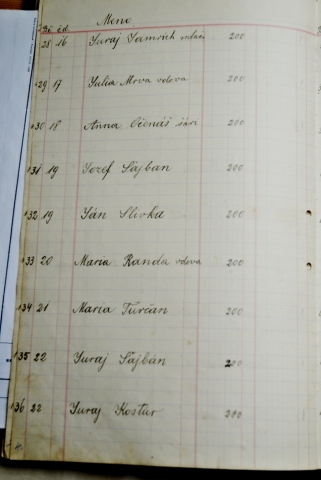 Meno
28 16 Juraj Jamrich mladš 200
29 17 Julia Mrva vdova 200
130 18 Anna Očenáš 200
131 19 Jozef Šajban 200
132 19 Ján Slivka 200
133 20 Maria Randa vdova 200
134 21 Maria Turčan 200
135 22 Juraj Šajbán 200
136 22 Juraj Kostur 200